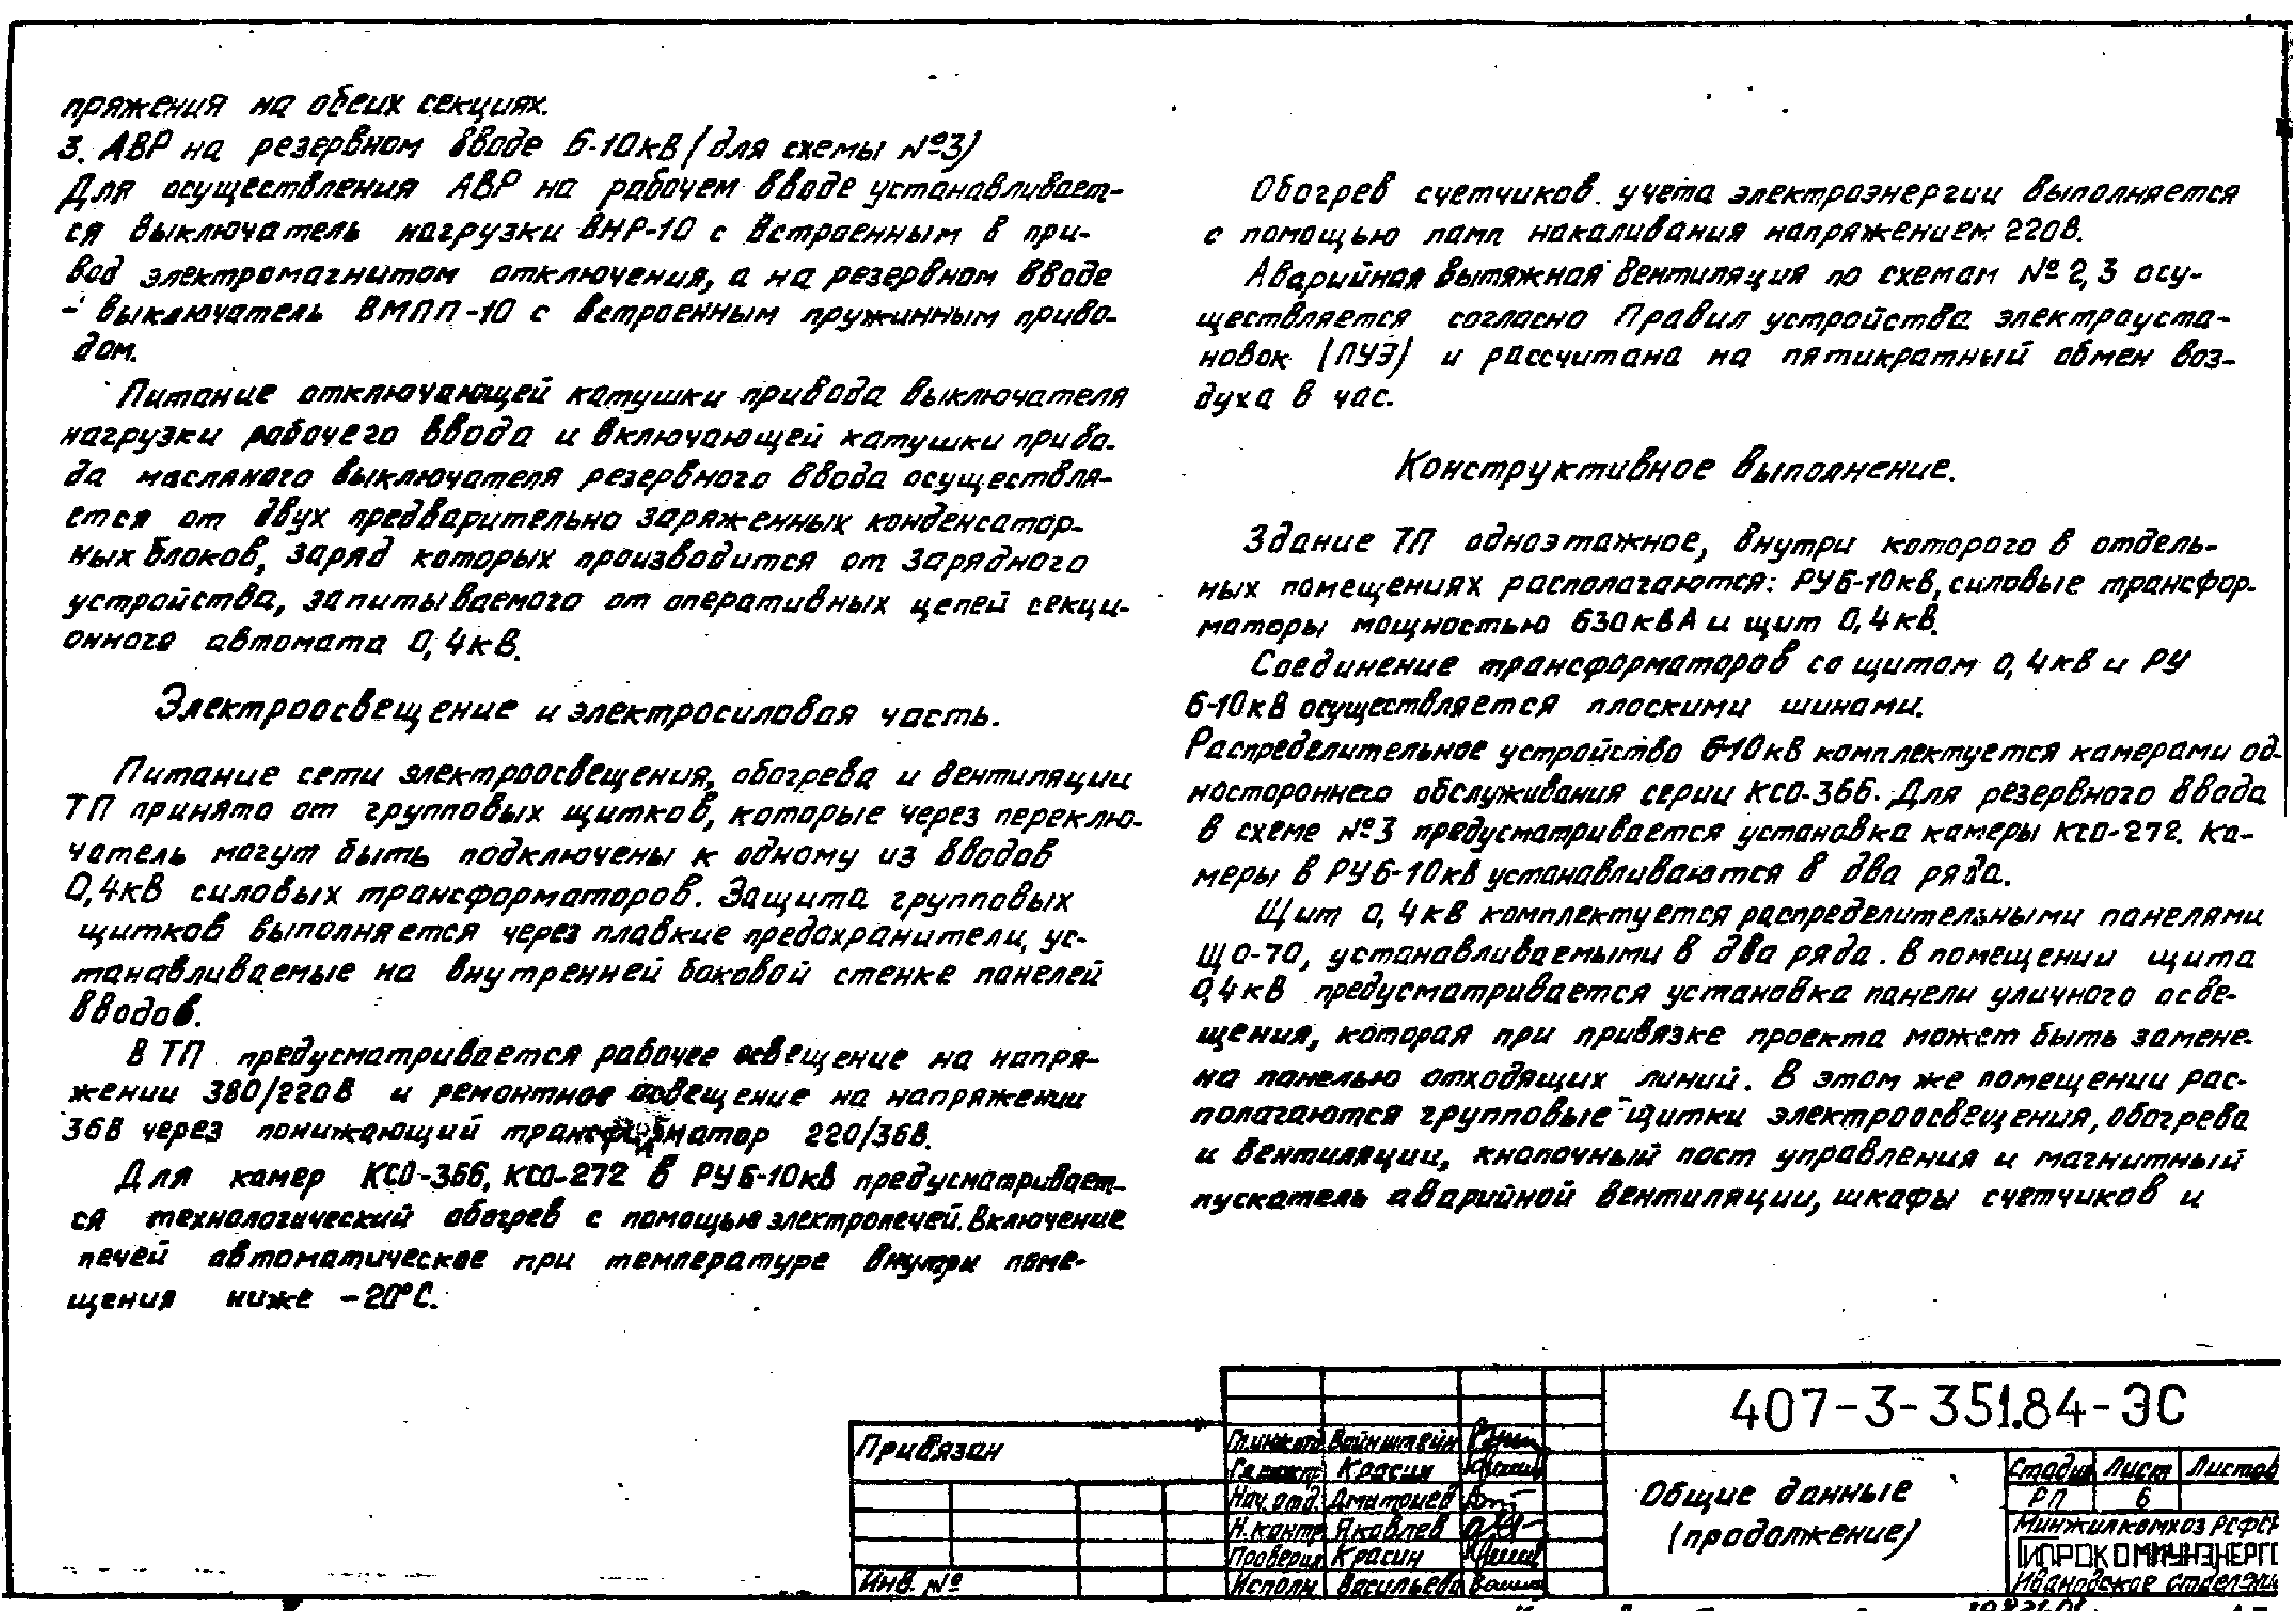 пряжения на обеих секциях.
3. АВР на резервном вводе 6-10кв (для схемы №3)
Для осуществления АВР на рабочем вводе устанавливает-
ся выключатель нагрузки ВНР-10 с встроенным в при-
вод электромагнитом отключения, а на резервном вводе
- выключатель ВМПП-10 с встроенным пружинным приво-
дом.
Питание отключающей катушки привода выключателя
нагрузки рабочего ввода и включающей катушки приво-
да масляного выключателя резервного ввода осуществля-
ется от двух предварительно заряженных конденсатор-
ных блоков, заряд которых производится от зарядного
устройства, запитываемого от оперативных цепей секци-
онного автомата 0,4кв.
Электроосвещение и электросиловая часть.
Питание сети электроосвещения, обогрева и вентиляции
ТП принято от групповых щитков, которые через переклю-
чатель могут быть подключены к одному из вводов
0,4кв силовых трансформаторов. Защита групповых
щитков выполняется через плавкие предохранители, ус-
танавливаемые на внутренней боковой стенке панелей
вводов.
В ТП предусматривается рабочее освещение на напря-
жении 380/220В и ремонтное освещение на напряжении
36В через понижающий трансформатор 220/36В.
Для камер КСО-366, КСО-272 в РУ6-10кв предусматривает-
ся технологический обогрев с помощью электропечей. Включение
печей автоматическое при температуре внутри поме-
щения ниже -20°С.
Обогрев счетчиков учета электроэнергии выполняется
с помощью ламп накаливания напряжением 220В.
Аварийная вытяжная вентиляция по схемам №2,3 осу-
ществляется согласно Правил устройства электроуста-
новок (ПУЭ) и рассчитана на пятикратный обмен воз-
духа в час.
Конструктивное выполнение.
Здание ТП одноэтажное, внутри которого в отдель-
ных помещениях располагаются: РУ6-10кв, силовые трансфор-
маторы мощностью 630кВА и щит 0,4кв.
Соединение трансформаторов со щитом 0,4кв и РУ
6-10кв осуществляется плоскими шинами.
Распределительное устройство 6-10кв комплектуется камерами од-
ностороннего обслуживания серии КСО-366. Для резервного ввода
в схеме №3 предусматривается установка камеры КСО-272. Ка-
меры в РУ6-10кв устанавливаются в два ряда.
Щит 0,4кв комплектуется распределительными панелями
ЩО-70, устанавливаемыми в два ряда. В помещении щита
0,4кв предусматривается установка панели уличного осве-
щения, которая при привязке проекта может быть замене-
на панелью отходящих линий. В этом же помещении рас-
полагаются групповые щитки электроосвещения, обогрева
и вентиляции, кнопочный пост управления и магнитный
пускатель аварийной вентиляции, шкафы счетчиков и
407-3-351.84-ЭС
Привязан
Инв. №
Гл.инж.отд. Вайнштейн
Красин
Нач.отд. Дмитриев
Н.контр. Яковлев
Проверил Красин
Исполн. Васильева
Общие данные
(продолжение)
Стадия Лист Листов
РП 6
Минжилкомхоз РСФСР
ГИПРОКОММУНЭНЕРГО
Ивановское отделение